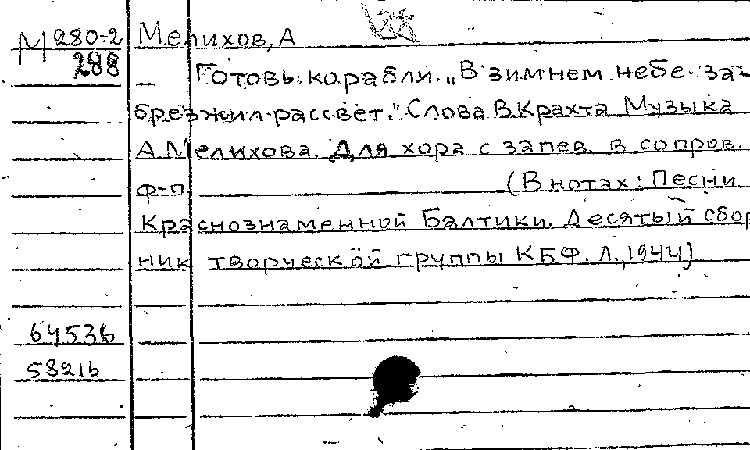 М 280-2 Мелихов, А
288
Готовь корабли. „В зимнем небе за-
брезжил рассвет." Слова В.Крахта Музыка
А.Мелихова. Для хора с запев. в сопров.
ф-п. (В нотах: Песни
Краснознаменной Балтики. Десятый сбор
ник творческой группы КБФ. Л., 1944)
64536
58216